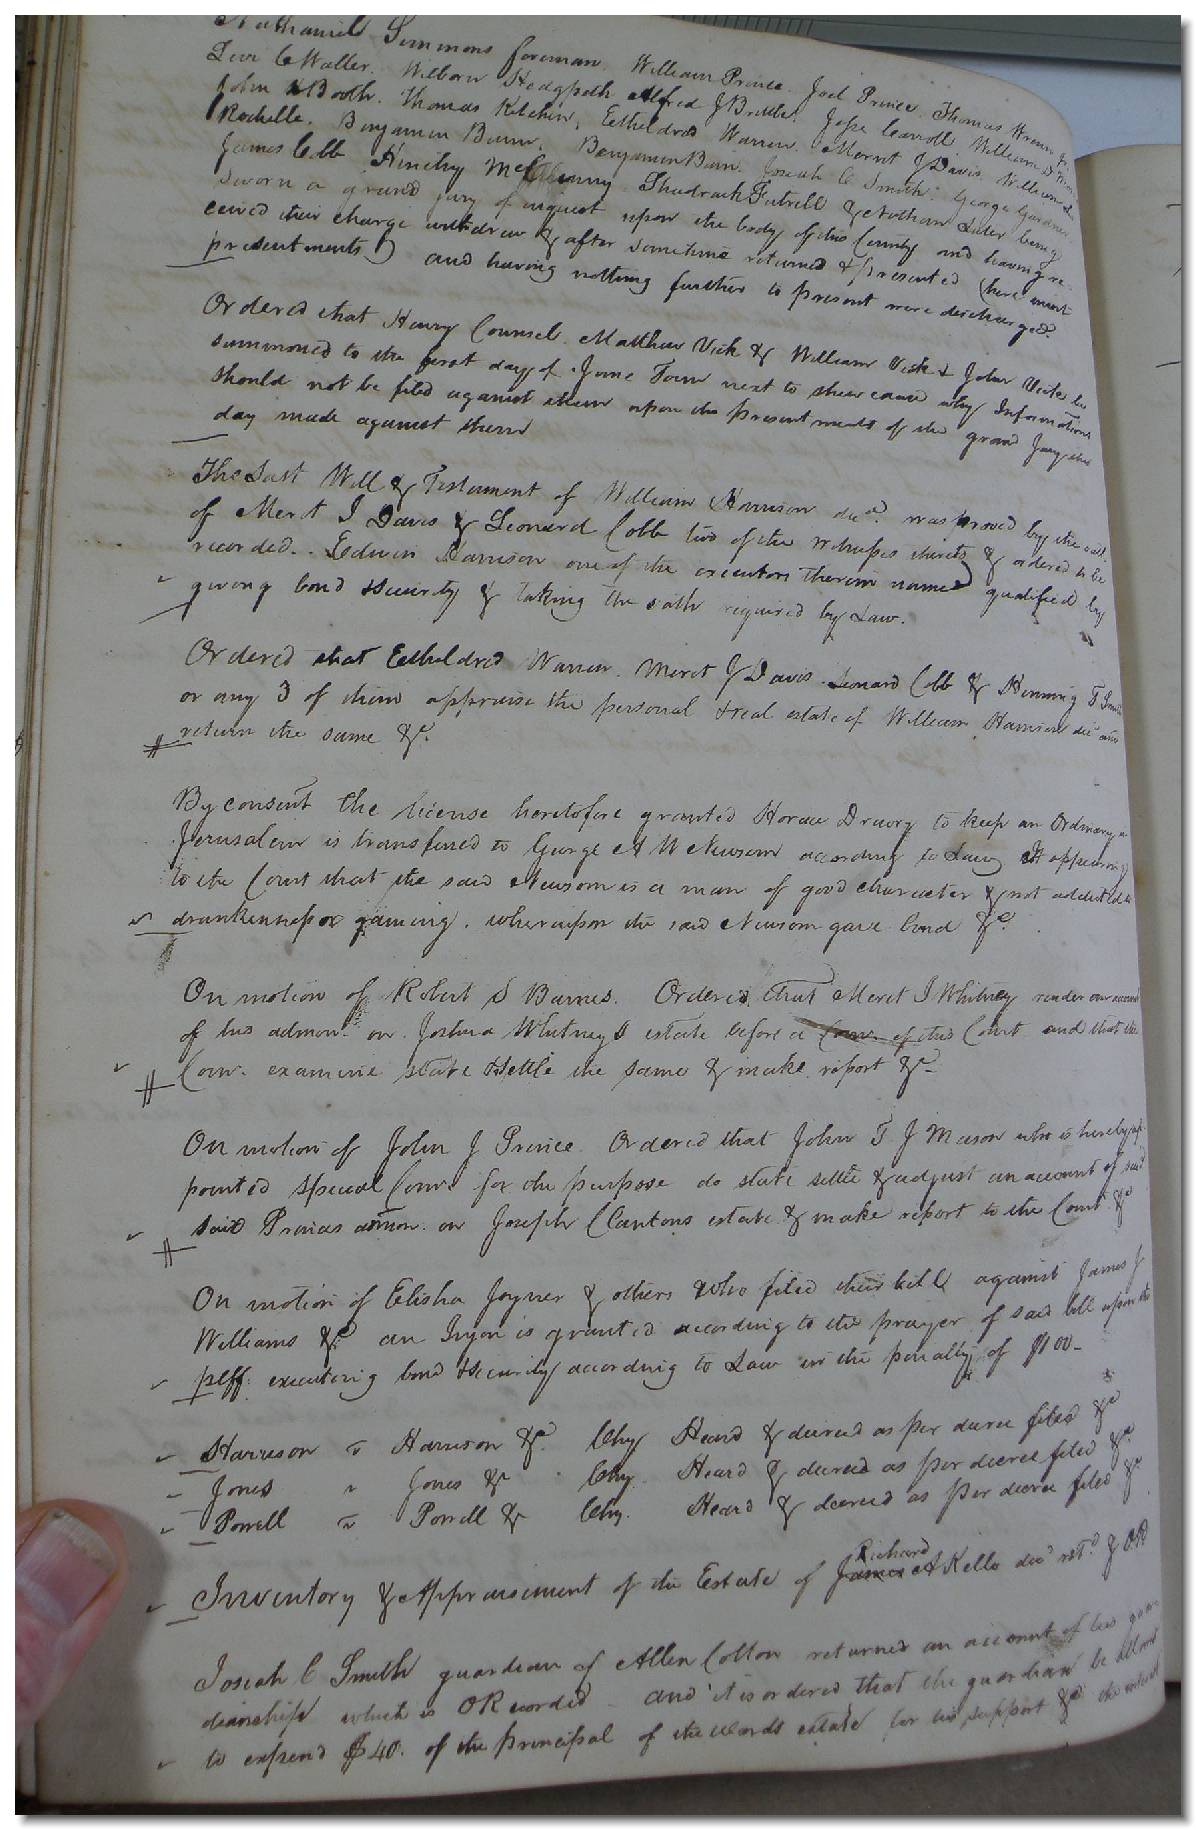 Nathaniel Simmons foreman. William Prince. Joel Prince. Thomas
Levi C Waller. Wilborn Hedgpeth Alfred J Brittle. Jesse Carroll William D
John Booth. Thomas Kitchin. Etheldred Warren. Merit J Davis. William
Rochelle. Benjamin Bunn. Benjamin Barn. Josiah C Smith. George Gardner
James Cobb Hinchy Shadrack Futrell & Nathan Lister being
sworn a grand jury of inquest upon the body of this County and having re
ceived their charge withdrew & after sometime returned & presented (here insert
presentments) and having nothing further to present were discharged.
Ordered that Henry Counsel. Matthew Vick & William Vick & John Vick be
summoned to the first day of June Term next to shew cause why Informations
should not be filed against them upon the presentments of the grand Jury this
day made against them
The Last Will & Testament of William Harrison decd. was proved by the oath
of Merit J Davis & Leonard Cobb two of the witnesses thereto & ordered to be
recorded.. Edwin Harrison one of the executors therein named qualified by
giving bond & security & taking the oath required by Law.
Ordered that Etheldred Warren. Merit J Davis. Leonard Cobb & Henning T Smith
or any 3 of them appraise the personal & real estate of William Harrison decd and
return the same &c.
By consent the license heretofore granted Horace Drewry to keep an Ordinary
Jerusalem is transfered to George A W Newsom according to Law, It appearing
to the Court that the said Newsom is a man of good character & not addicted to
drunkenness or gaming. whereupon the said Newsom gave bond &c.
On motion of Robert S Barnes. Ordered that Merit J Whitney render an account
of his admon. on Joshua Whitney's estate before a Com. of this Court and that the
Com. examine state & settle the same & make report &c
On motion of John J Prince. Ordered that John T J Mason who is hereby ap
pointed special Comr. for the purpose do state settle & adjust an account of said
said Princes admon. on Joseph Clantons estate & make report to the Court &c
On motion of Elisha Joyner & others who filed their bill against James J
Williams &c an Injon is granted according to the prayer of said bill upon the
plff. executing bond & security according to Law in the penalty of $100-
Harrison v Harrison &c. Chy Heard & decreed as per decree filed &c
Jones v Jones &c Chy. Heard & decreed as per decree filed &c.
Powell v Powell & Chy. Heard & decreed as per decree filed &c
Inventory & Appraisement of the Estate of James Richard A Kello decd retd. & OR
Josiah C Smith guardian of Allen Cotton returned an account of his guar
dianship which is ORecorded - and it is ordered that the guardian be allowed
to expend $40. of the principal of the wards estate for his support &c